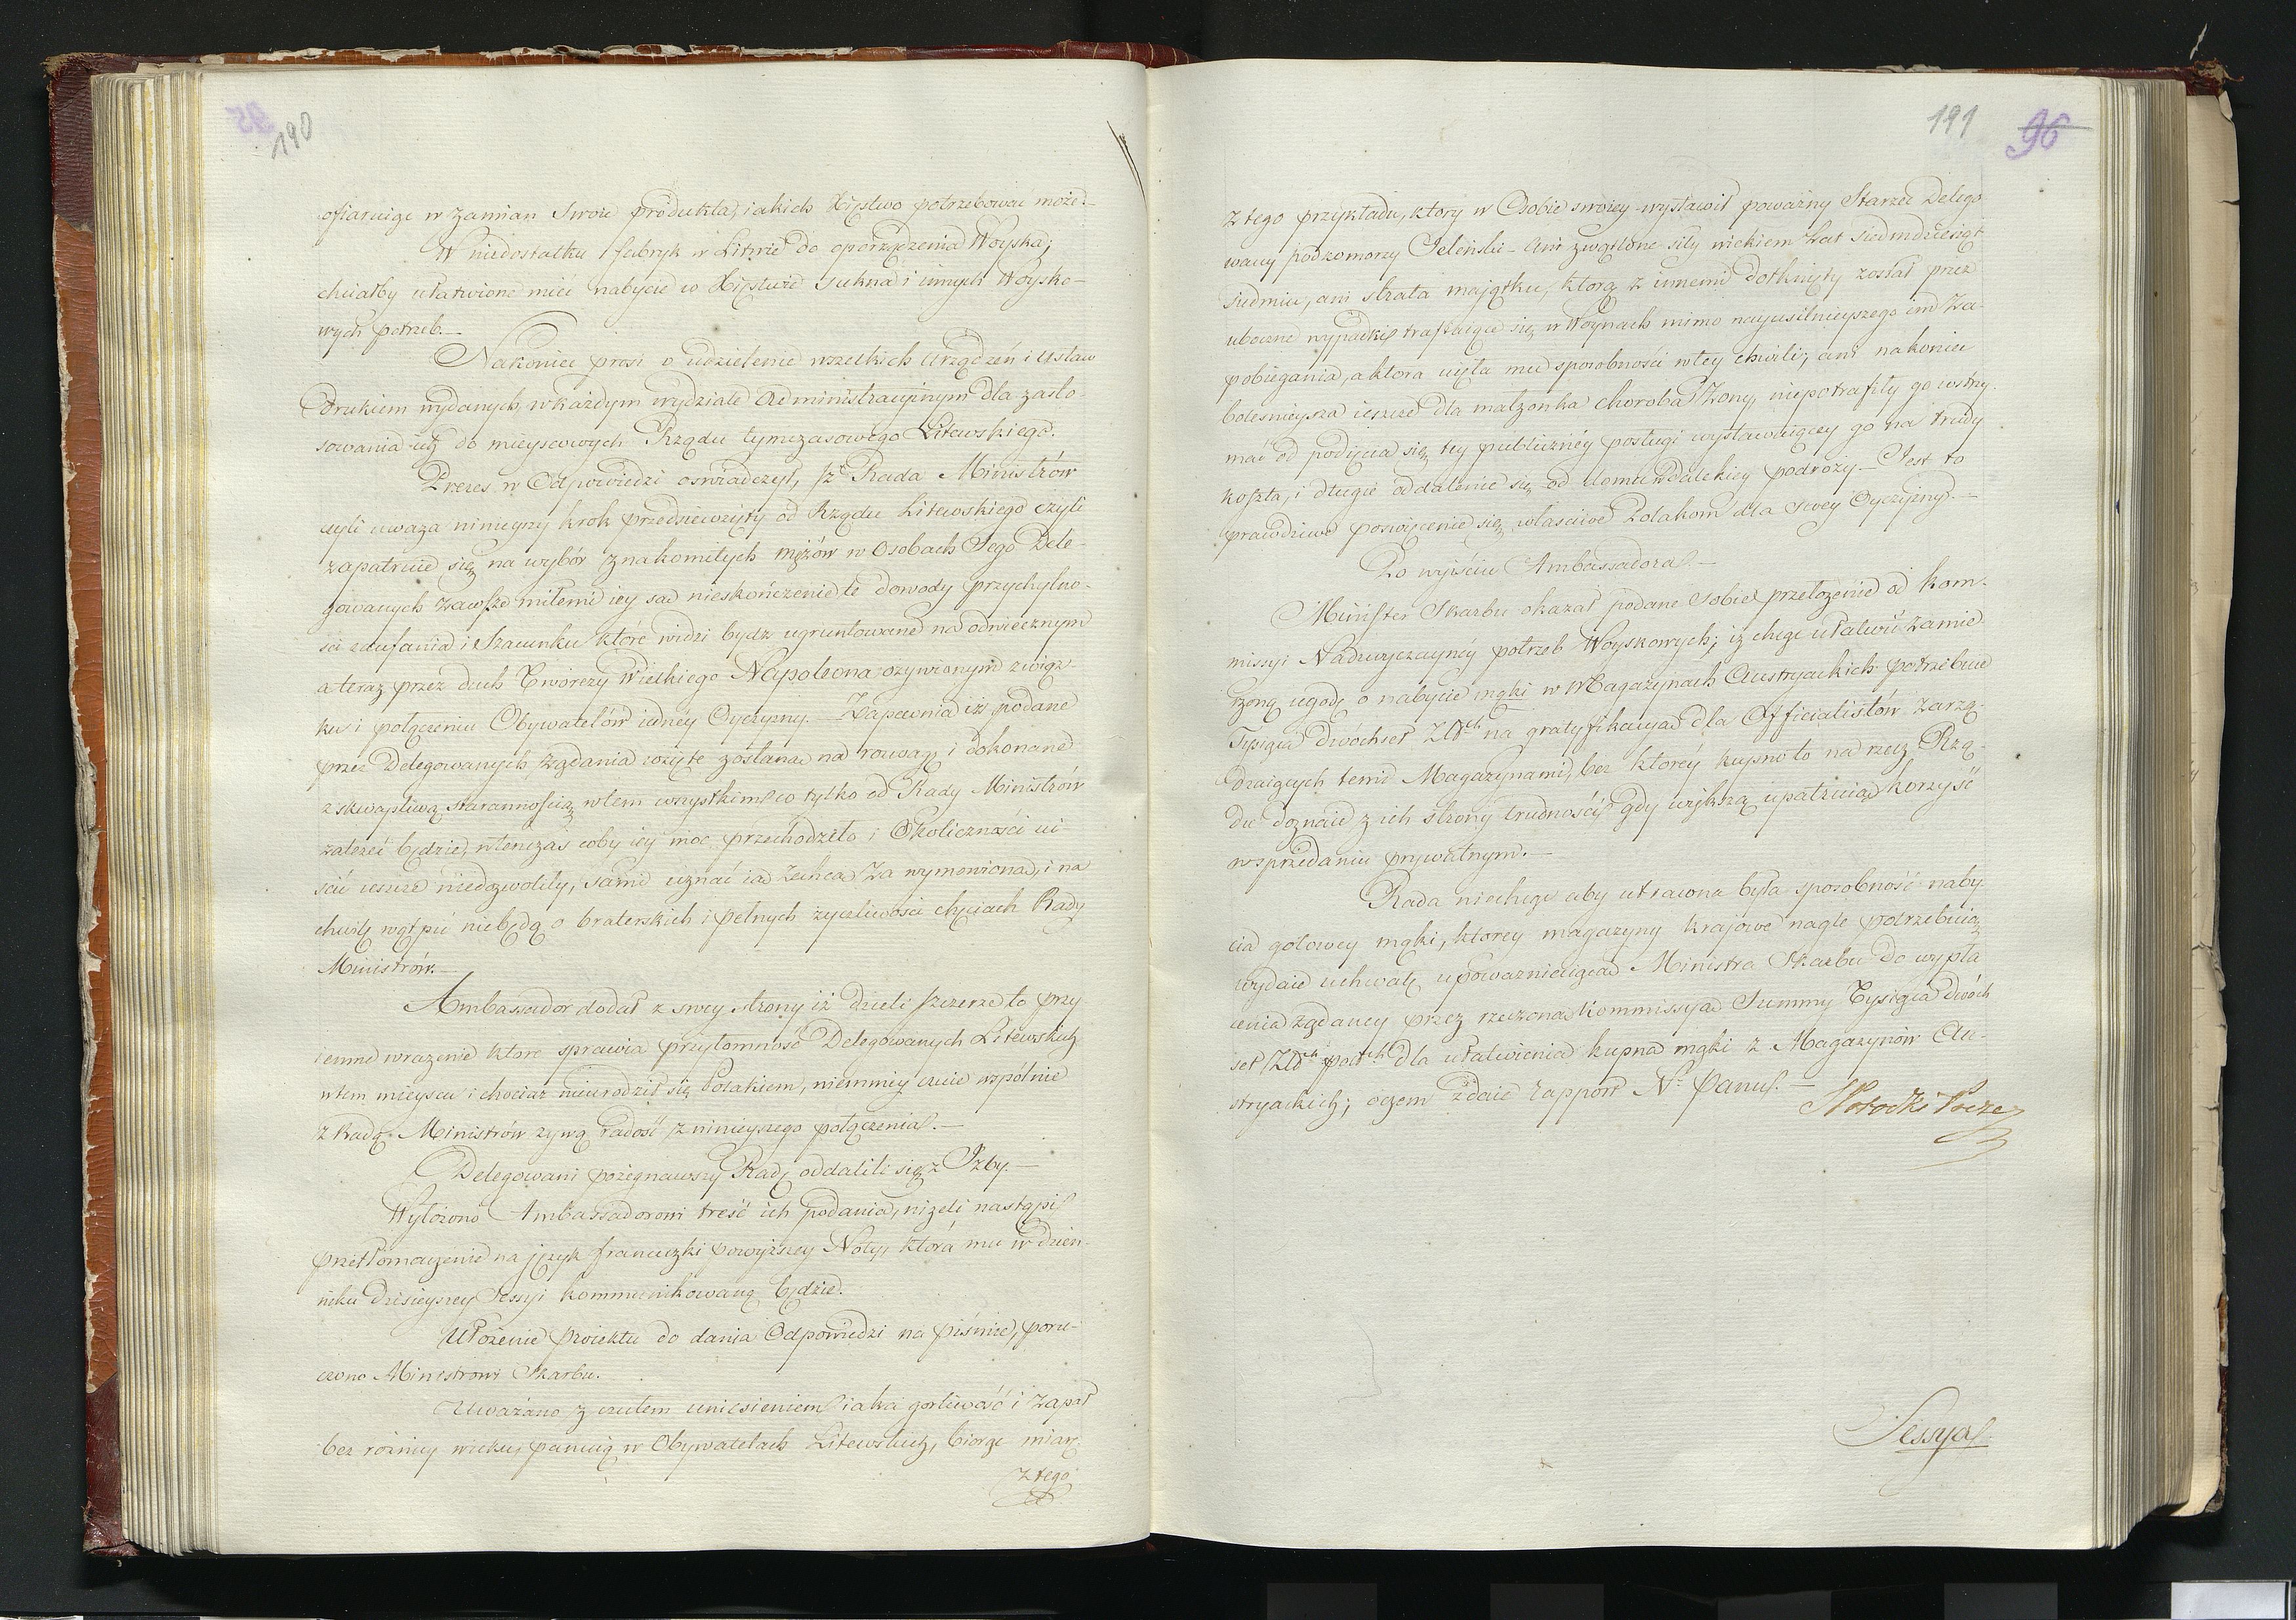 190
ofiaruiąc w zamian swoie produkta, iakich Xięstwo potrzebować może.—
W niedostatku fabryk w Litwie do oporządzenia Woyska;
chciałby ułatwione mieć nabycie w Xięstwie sukna i innych Woysko-
wych potrzeb.—
Nakoniec prosi o udzielenie wszelkich Urządzeń i Ustaw
Drukiem wydanych, w każdym wydziale Administracyinym dla zasto-
sowania ich do mieyscowych Rządu tymczasowego Litewskiego.
Prezes w Odpowiedzi oświadczył, iż Rada Ministrów
czyli uważa ninieyszy krok przedsięwzięty od Rządu Litewskiego czyli
zapatruie się na wybór znakomitych mężów w Osobach Jego Dele-
gowanych zawsze miłemi iey są nieskończenie te dowody przychylno-
ści zaufania i Szacunku które widzi bydź ugruntowane na odwiecznym
a teraz przez duch Twórczy Wielkiego Napoleona ożywionym związ-
ku i połączeniu Obywatelów iedney Oyczyzny.— Zapewnia iż podane
przez Delegowanych żądania wzięte zostaną na rozwagę i dokonane
z skwapliwą starannością w tem wszystkim co tylko od Rady Ministrów
zależeć będzie, wtenczas coby iey moc przechodziło i Okoliczności ui-
ścić ieszcze niedozwoliły, sami uznać ią zechcą za wymowioną, i na
chwilę wątpić niebędą o braterskich i pełnych życzliwości chęciach Rady
Ministrów.—
Ambassador dodał z swey strony iż dzieli szczerze to przy
iemne wrażenie które sprawia przytomność Delegowanych Litewskich
w tem mieyscu i chociaż nieurodził się Polakiem, niemniey czuie wspólnie
z Radą Ministrów żywą radość z ninieyszego połączenia.—
Delegowani pożegnawszy Radę oddalili się z Izby.—
Wyłożono Ambassadorowi treść ich podania, niżeli nastąpi
przetłomaczenie na język francuzki powyższey Noty, która mu w dzien-
niku dzisieyszey Sessyi kommunikowaną będzie.
Ułożenie proiektu do dania Odpowiedzi na piśmie, poru-
czono Ministrowi Skarbu.
Uważano z czułem uniesieniem iaka gorliwość i zapał
bez różnicy wieku panuią w Obywatelach Litewskich, biorąc miarę
z tego
191 96
z tego przykładu, który w Osobie swoiey wystawił poważny Starzec Delego
wany podkomorzy Jeleński— Ani zwątlone siły wiekiem Lat siedmdziesiąt
siedmiu, ani strata maiątku, którą z innemi dotknięty został przez
uboczne wypadki trafiaiące się w Woynach mimo nayusilnieyszego im Za-
pobiegania, a która uięła mu sposobności w tey chwili; ani nakoniec
boleśnieysza ieszcze dla małżonka choroba Żony, niepotrafiły go wstrzy-
mać od podięcia się tey publiczney posługi wystawuiącey go na trudy
koszta, i długie oddalenie się od domu w dalekiey podróży.— Jest to
prawdziwe poswięcenie się właściwe Polakom dla swey Oyczyzny.—
Po wyiściu Ambassadora.—
Minister Skarbu okazał podane sobie przełożenie od Kom-
missyi Nadzwyczayney potrzeb Woyskowych; iż chcąc ułatwić zamie
rzoną ugodę o nabycie mąki w Magazynach Austryackich potrzebuie
Tysiąca dwóchset Złch na gratyfikacyą dla Officialistów zarzą-
dzaiących temi Magazynami, bez którey kupno to na rzecz Rzą-
du doznaie z ich strony trudności, gdy większą upatruią korzyść
w sprzedaniu prywatnym.—
Rada niechcąc aby utracona była sposobność naby-
cia gotowey mąki, którey magazyny kraiowe nagle potrzebuią
wydaie uchwałę upoważniaiącą Ministra Skarbu do wypła
cenia żądaney przez rzeczoną Kommissyą Summy Tysiąca dwóch
set Złch pol. dla ułatwienia kupna mąki z Magazynów Au-
stryackich; oczem zdaie rapport N. Panu.—
S Potocki Prezes
Sessya